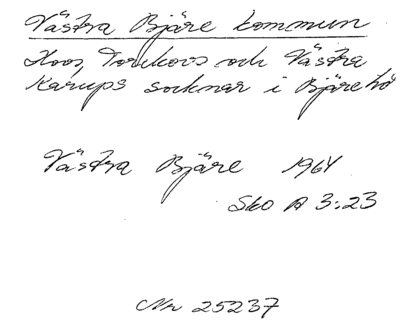 Västra Bjäre kommun
Hovs, Torekovs och Västra
Karups socknar i Bjäre hd
Västra Bjäre 1964
Sko A 3:23
Nr 25237